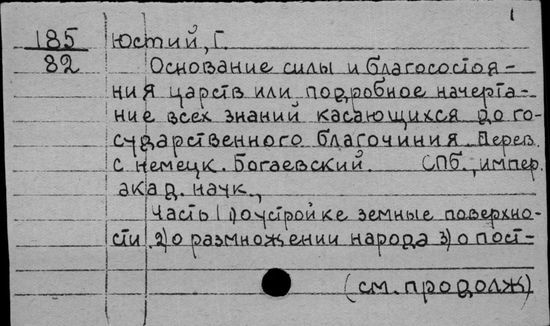 1
185 Юстий, Г.
82 Основание силы и благосостоя-
ния царств или подробное начерта-
ние всех знаний касающихся до го-
сударственного благочиния. Перев.
с немецк. Богаевский. СПб., импер.
акад. наук.,
Часть 1 1) о устройке земные поверхно-
сти. 2) о размножении народа 3) о пост-
(см. продолж)